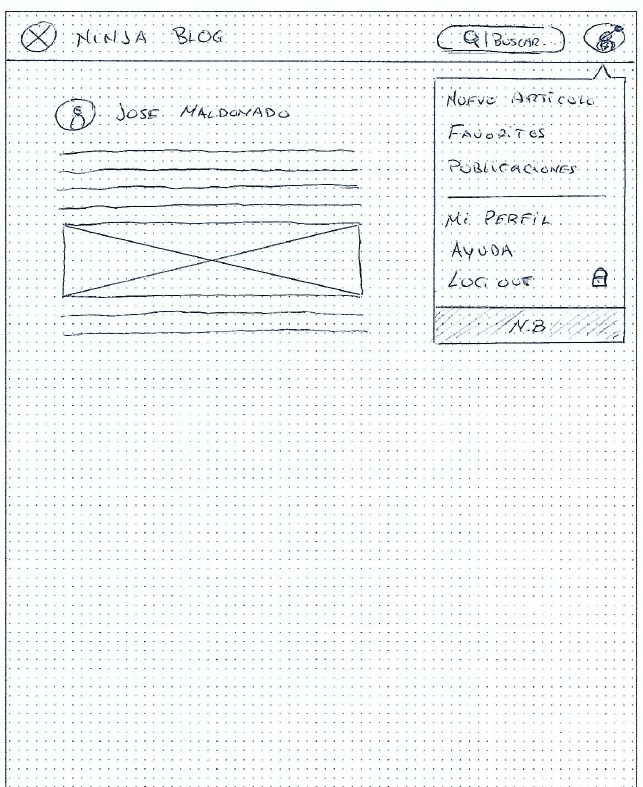 NINJA BLOG
BUSCAR..
JOSE MALDONADO
NUEVO ARTÍCULO
FAVORITOS
PUBLICACIONES
Mi PERFIL
AYUDA
LOG OUT
N.B